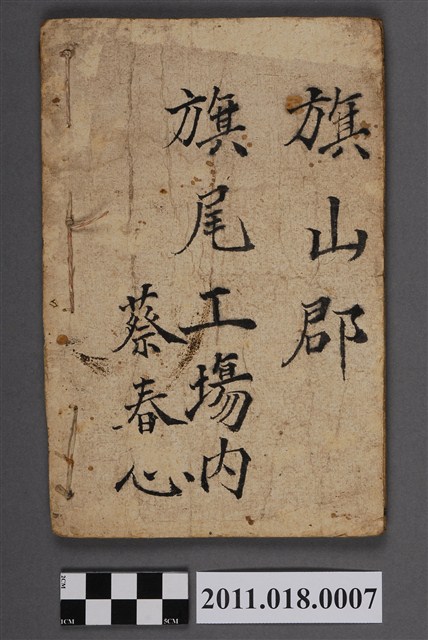 旗山郡
旗尾工場内
蔡春心
2CM
1CM
5CM
2011.018.0007